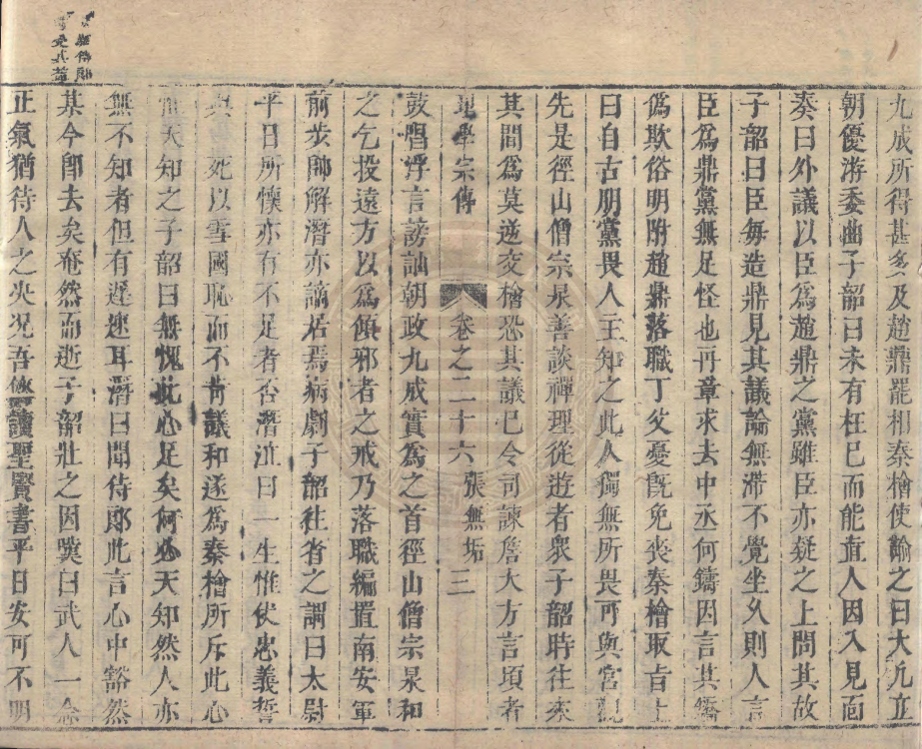 九成所得甚多及趙鼎罷相秦檜使諭之曰大凡立
朝優游委曲子韶曰未有枉巳而能直人因入見面
奏曰外議以臣為趙鼎之黨雖臣亦疑之上問其故
子韶曰臣每造鼎見其議論無滯不覺坐久則人言
臣為鼎黨無足怪也再章求去中丞何鑄因言其矯
偽欺俗明附趙鼎落職丁父憂既免喪秦檜取旨上
曰自古朋黨畏人主知之此人獨無所畏可與宮觀
先是徑山僧宗杲善談禪理從遊者衆子韶時往來
其間為莫逆交檜恐其議巳令司諫詹大方言頃者
聖學宗傳 卷之二十六 張無垢 三
鼓唱浮言謗訕朝政九成實為之首徑山僧宗杲和
之乞投遠方以為傾邪者之戒乃落職編置南安軍
前步帥解潛亦謫居焉病劇子韶往省之謂曰太尉
平日所懷亦有不足者否潛泣曰一生惟仗忠義誓
與 死以雪國恥而不肯議和遂為秦檜所斥此心
惟天知之子韶曰無愧此心足矣何必天知然人亦
無不知者但有遲速耳潛曰聞侍郎此言心中豁然
某今即去矣奄然而逝子韶壯之因嘆曰武人一念
正氣猶待人之决况吾儕讀聖賢書平日安可不明